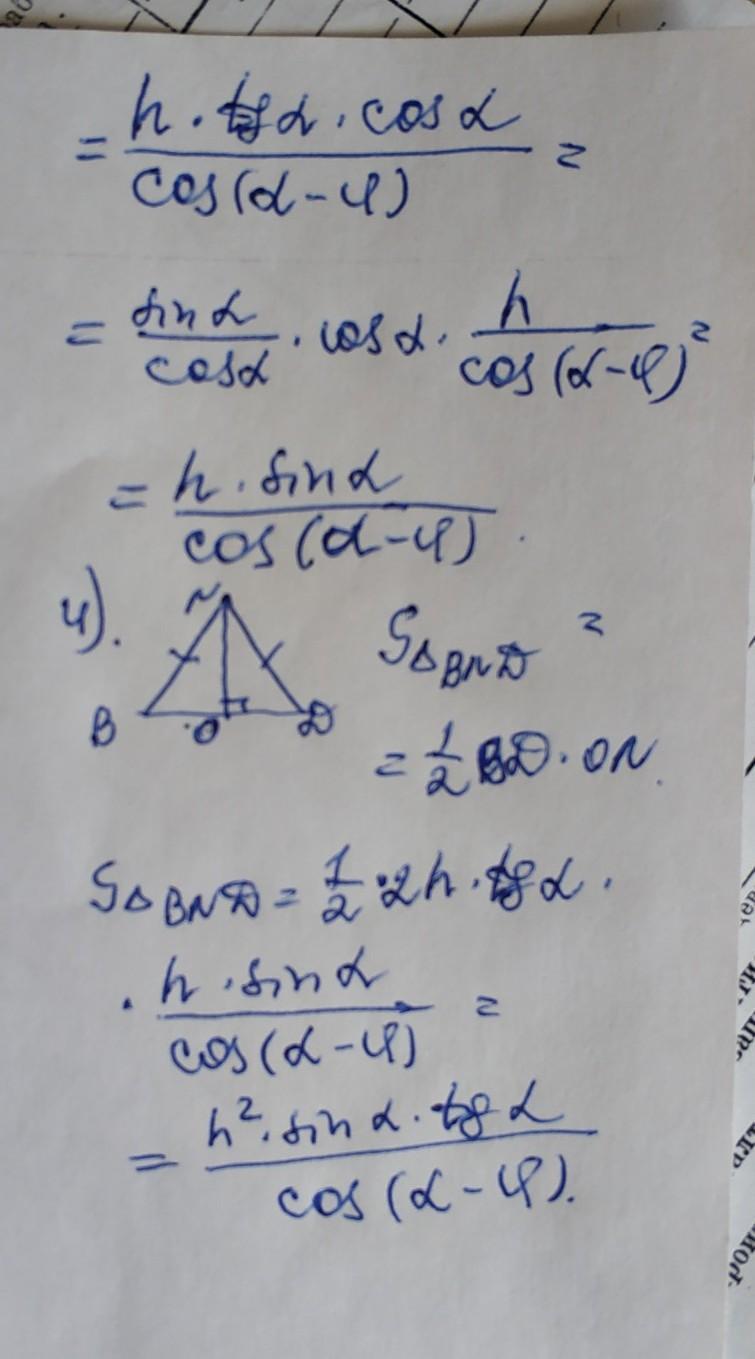 = h · tg α · cos α / cos(α - φ) =
= sin α / cos α · cos α · h / cos(α - φ) =
= h · sin α / cos(α - φ).
4).
N
B O D
S△BND =
= 1/2 BD · ON.
S△BND = 1/2 · 2h · tg α ·
· h · sin α / cos(α - φ) =
= h² · sin α · tg α / cos(α - φ).